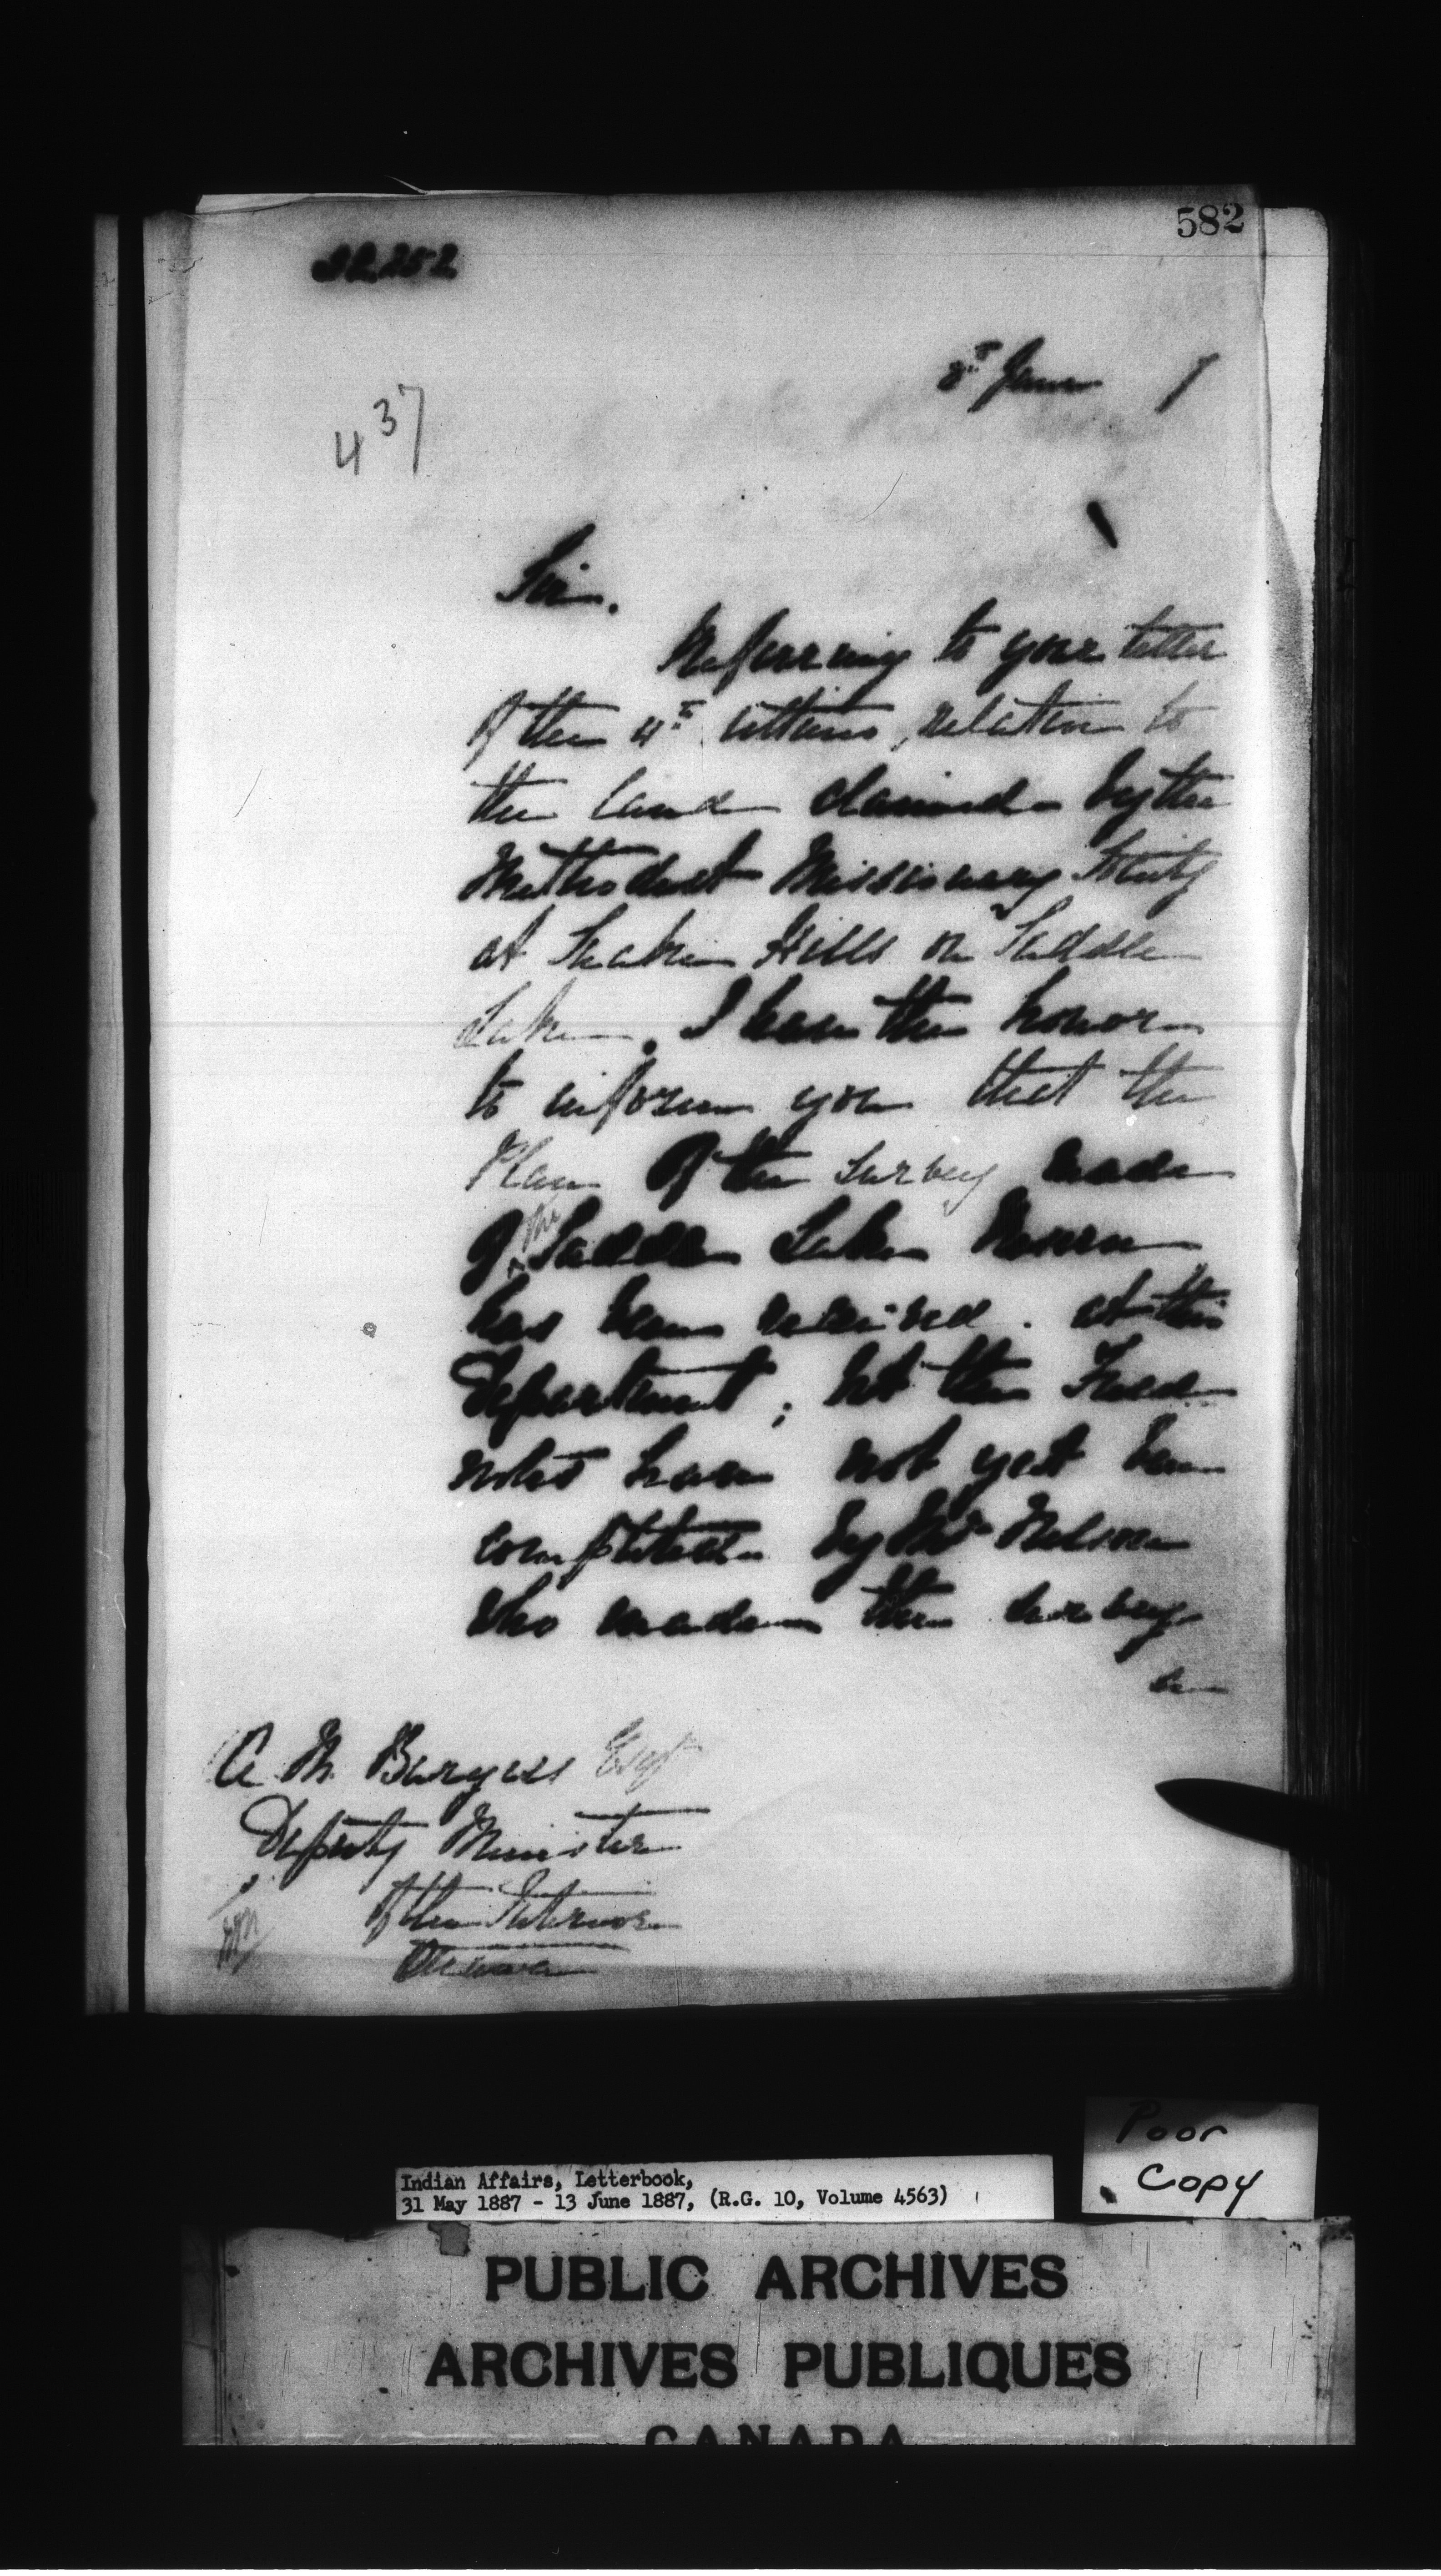 582
437
8th June 7
Sir.
Referring to your letter
of the 4th ultimo, relative to
the land claimed by the
Methodist Missionary Society
at Snake Hills or Saddle
Lake. I have the honor
to inform you that the
Plan of the survey made
of the Saddle Lake Reserve
has been received. at this
Department; but the Field
notes have not yet been
completed by Mr Nelson
who made the survey
A M Burgess Esqr
Deputy Minister
of the Interior
Ottawa
Poor
Copy
Indian Affairs, Letterbook,
31 May 1887 - 13 June 1887, (R.G. 10, Volume 4563)
PUBLIC ARCHIVES
ARCHIVES PUBLIQUES
CANADA